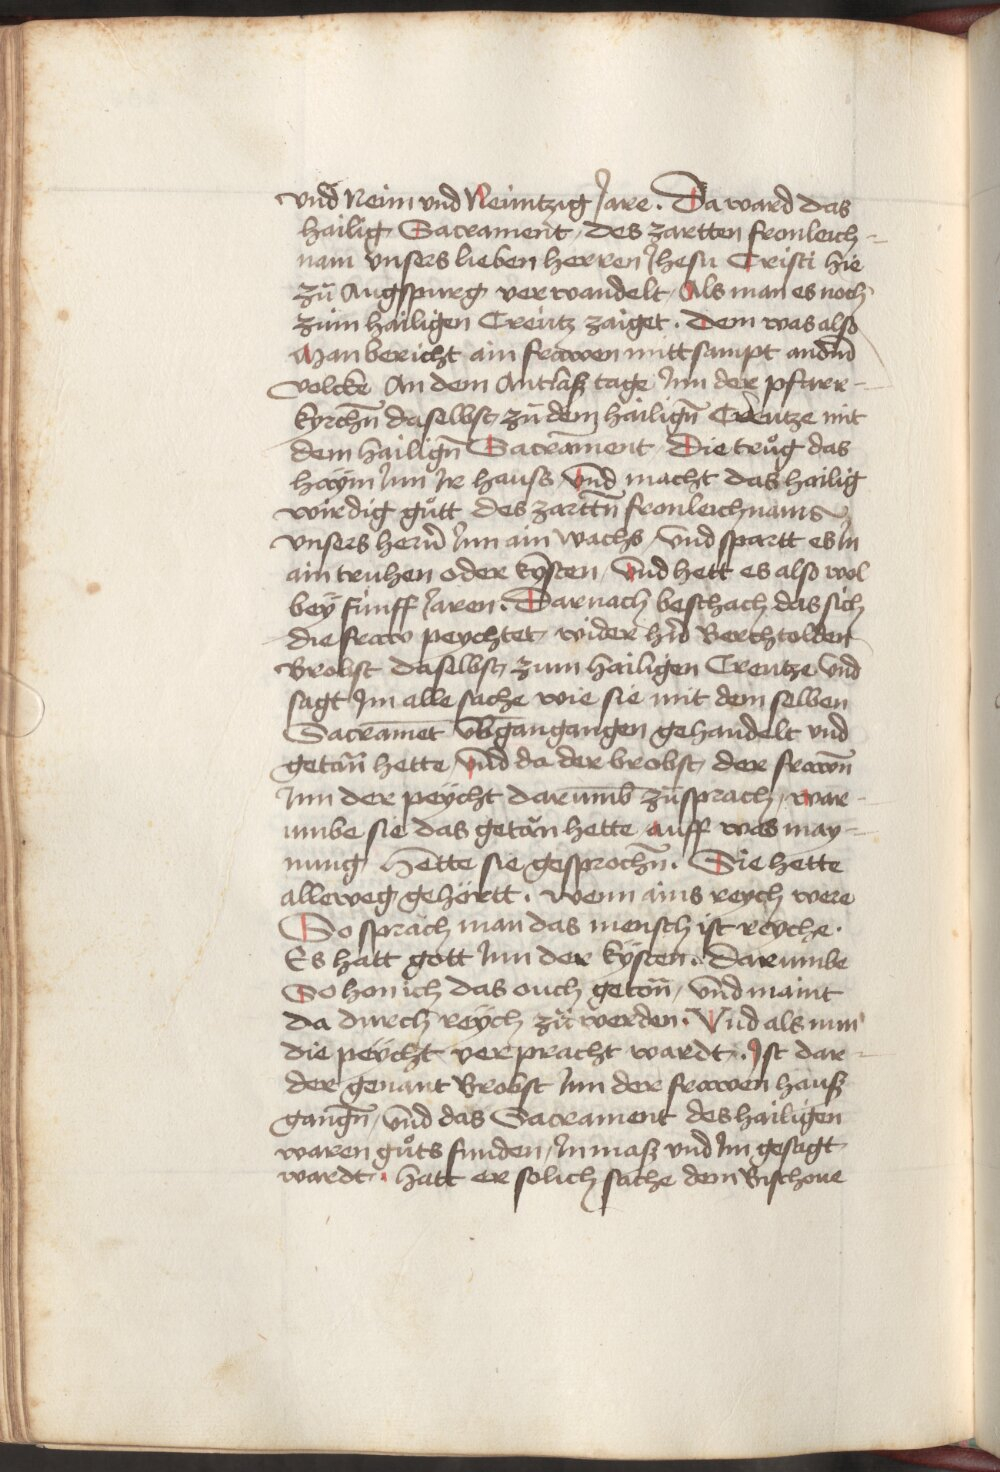 vnd Neün vnd Neüntzig Jare. Da ward das
hailig Sacrament, des zartten fronleich-
nam vnsers lieben herren Jhesu Cristi hie
zu᷑ Augspurg verwandelt, Als man es noch
züm hailigen Creütz zaiget. Dem was also
Man bericht ain frawen mittsampt andm̄
volcke An dem Antlaß tage Jnn der pfarr-
kyrchn̄ daselbst, zu᷑ dem hailign̄ Creutze mit
dem hailign̄ Sacrament, Die tru᷑g das
haÿm Jnn Jr hauss, vnd macht das hailig
wirdig gůtt des zarttn̄ fronleichnams
vnsers hern̄ Jnn ain wachs, vnd spartt es Jn
ain truhen oder kÿsten, vnd hett es also wol
beÿ fünff Jaren. Darnach beschach das sich
die fraw peychtet, wider hr̄n Berchtolden
Brobst daselbst, züm hailigen Creutze vnd
sagt Jm alle sache wie sie mit dem selben
Sacramēt vb̄gangangen gehandelt vnd
getan̄ hette, vnd da der brobst, der frawn̄
Jnn der peÿcht darumb zu᷑sprach, war-
umbe sie das getăn hette, auff was may-
nung, Hette sie gesprochn̄. Sie hette
alleweg gehörtt. wenn ains reych were
So sprăch man das mensch ist reyche.
Es hatt gott Jnn der kÿsten. Darumbe
So hon ich das ouch getōn, vnd maint
da durch reÿch zu᷑ werden. Vnd als nun
die peÿcht verpracht wardt. Jst dar-
der genant Brobst Jnn der frawen hauß
gangn̄, vnd das Sacrament des hailigen
waren gůts funden, Jnmaß vnd Jm gesagt
wardt. hatt er solich sache dem Bischoue